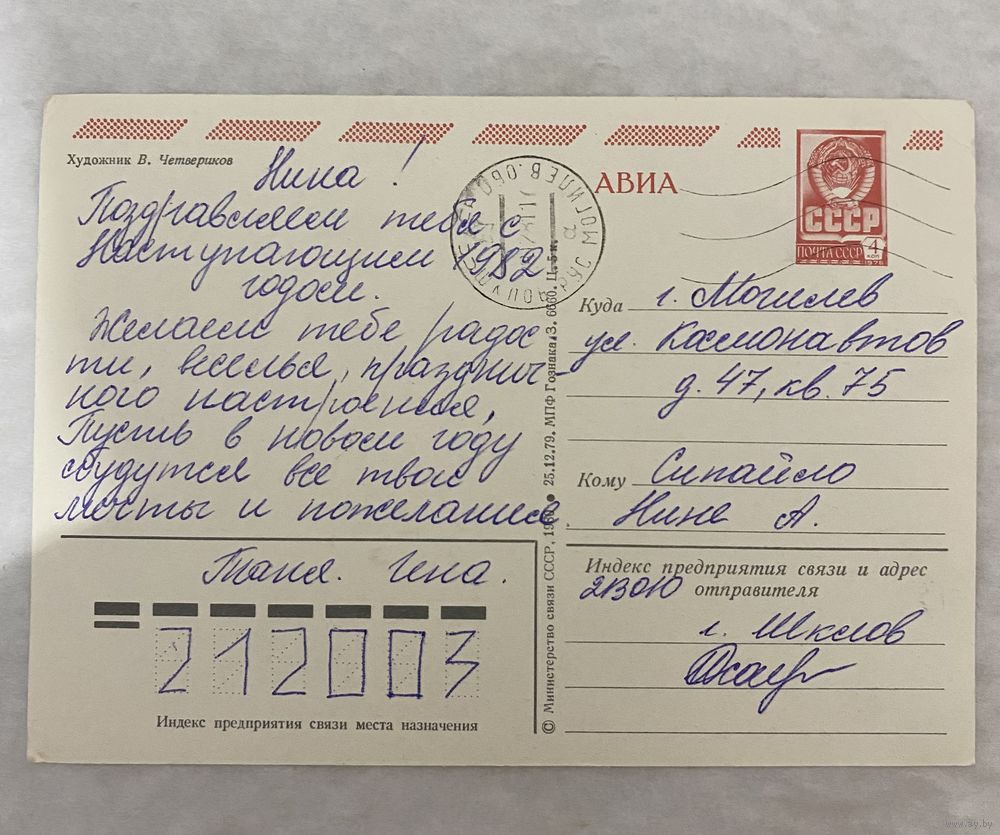 Художник В. Четвериков
Нина!
Поздравляем тебя с
Наступающим 1982
годом.
Желаем тебе радос
ти, веселья, празднич-
ного настроения,
Пусть в новом году
сбудутся все твои
мечты и пожелания
Таня. Гена.
212003
Индекс предприятия связи места назначения
© Министерство связи СССР, 1980 ● 25.12.79. МПФ Гознака. З. 6660. Ц. 5 к.
АВИА
СССР
ПОЧТА СССР
4
коп
1976
Куда г. Могилев
ул. Космонавтов
д. 47, кв. 75
Кому Сипайло
Нине А.
Индекс предприятия связи и адрес
отправителя
213010
г. Шклов
www.ay.by